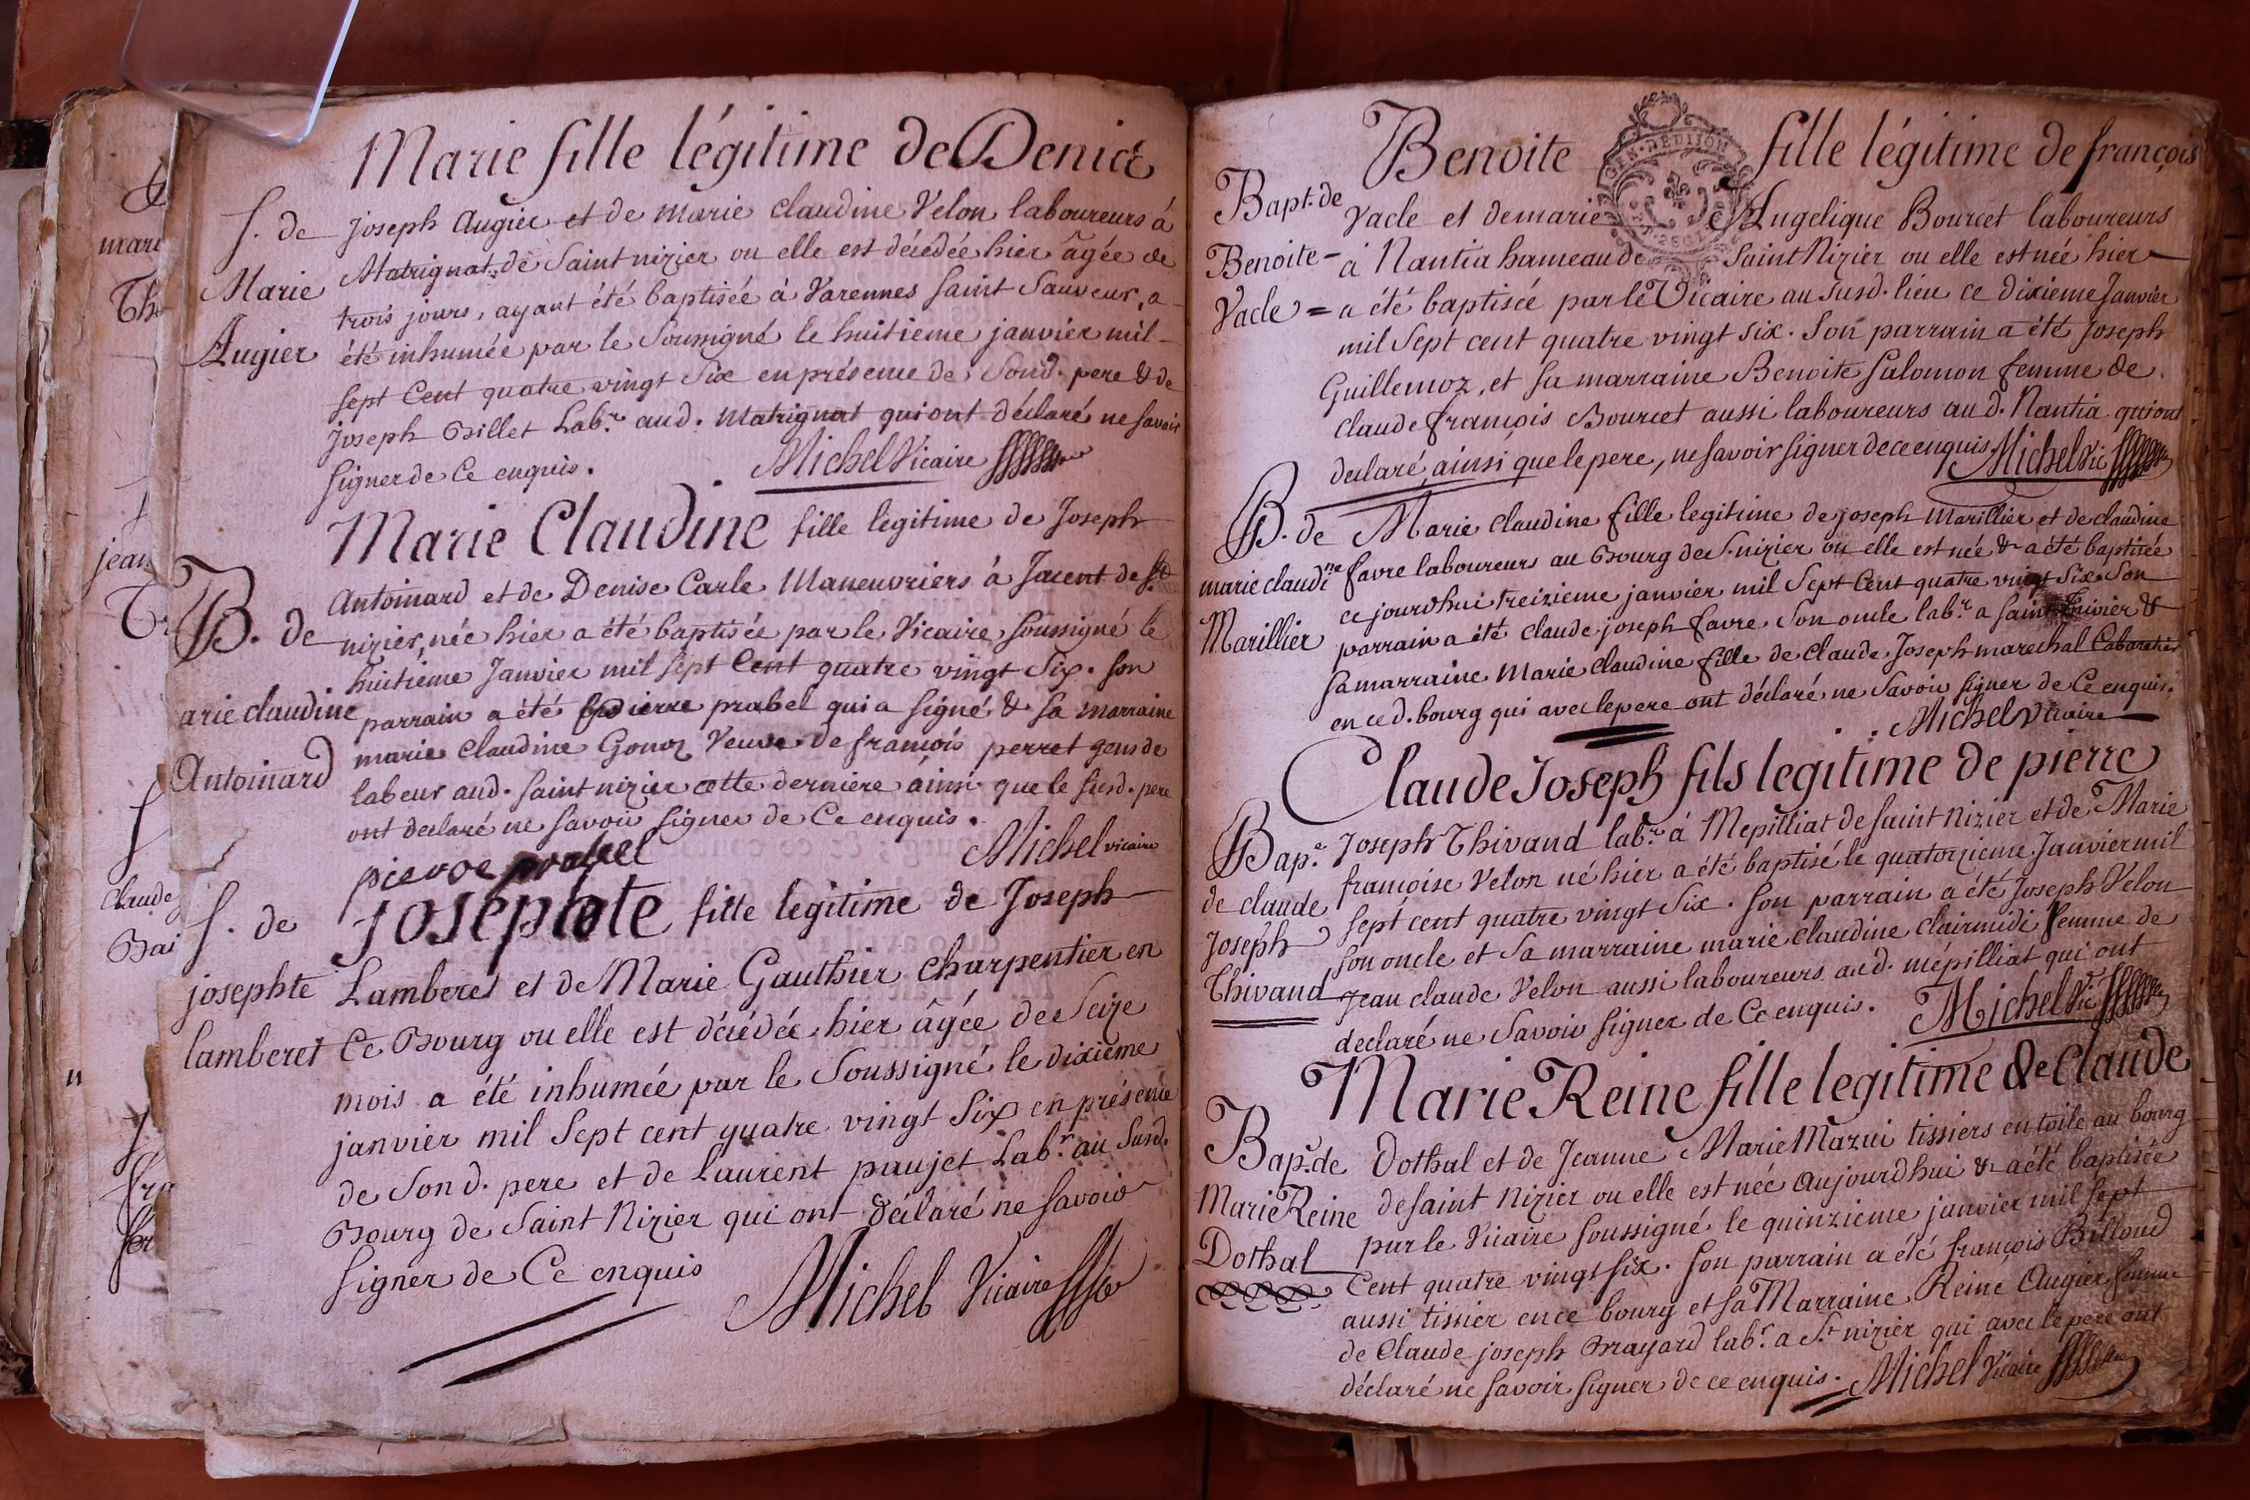 Marie fille légitime de Denice
S. de
Joseph Augier et de marie claudine Velon laboureurs à
Marie
Matrignat de Saint nizier ou elle est décédée hier âgée de
trois jours, ayant été baptisée à Varennes Saint Sauveur, a
Augier
été inhumée par le Soussigné le huitieme janvier mil
sept Cent quatre vingt Six en présence de Sond. pere & de
Joseph Billet Labr. aud. Matrignat qui ont déclaré ne savoir
signer de Ce enquis.
Michel Vicaire
Marie Claudine fille légitime de Joseph
B. de
Antoinard et de Denise Carle Maneuvriers à Jacent de St
nizier, née hier a été baptisée par le Vicaire soussigné le
huitième Janvier mil sept Cent quatre vingt Six. Son
arie claudine
parrain a été pierre prabel qui a signé & sa marraine
marie Claudine Gonoz Veuve de françois perret gens de
Antoinard
labeur aud. saint nizier cette derniere ainsi que le susd. pere
ont declaré ne savoir signer de Ce enquis.
pierre prabel
Michel vicaire
S. de
Josephte fille legitime de Joseph
josephte
Lamberet et de Marie Gauthier charpentier en
lamberet
Ce Bourg ou elle est décédée hier âgée de Seize
mois a été inhumée par le Soussigné le dixieme
janvier mil Sept cent quatre vingt Six en présence
de Son d. pere et de Laurent paujet Labr. au Susd.
Bourg de Saint Nizier qui ont déclaré ne savoir
signer de Ce enquis
Michel Vicaire
Benoite fille légitime de françois
GEN. DE DIJON
Bapt. de
Vacle et de marie Angelique Bourcet laboureurs
Benoite
à Nantia hameau de Saint Nizier ou elle est née hier
Vacle
a été baptisée par le Vicaire au susd. lieu ce dixieme Janvier
mil Sept cent quatre vingt six. Son parrain a été Joseph
Guillemoz, et sa marraine Benoite Salomon femme de
claude françois Bourcet aussi laboureurs aud. Nantia qui ont
declaré, ainsi que le pere, ne savoir signer de ce enquis. Michel Vic
B. de
Marie claudine fille legitime de joseph Marillier et de claudine
marie claudine
favre laboureurs au Bourg de S. nizier ou elle est née & a été baptisée
ce jourdhui treizieme janvier mil Sept Cent quatre vingt Six. Son
Marillier
parrain a été claude joseph favre Son oncle labr. a saint &
sa marraine Marie Claudine fille de Claude Joseph marechal Cabaretier
en ce d. bourg qui avec le pere ont déclaré ne Savoir signer de Ce enquis.
Michel Vicaire
Claude Joseph fils legitime de pierre
Bap.
Joseph Thivand labr. à Mepilliat de saint Nizier et de Marie
françoise Velon né hier a été baptisé le quatorzieme Janvier mil
de claude
sept cent quatre vingt Six. Son parrain a été Joseph Velon
Joseph
son oncle et Sa marraine marie claudine clairmidi femme de
Thivand
Jean claude Velon aussi laboureurs aud. mépilliat qui ont
declaré ne Savoir signer de Ce enquis. Michel Vic
Marie Reine fille legitime de Claude
Bapt. de
Dothal et de Jeanne Marie Mazui tissiers en toile au bourg
Marie Reine
de saint Nizier ou elle est née aujourdhui & a été baptisée
par le Vicaire soussigné le quinzieme janvier mil sept
Dothal
Cent quatre vingt six. Son parrain a été françois Billoud
aussi tissier en ce bourg et sa Marraine Reine Augier femme
de Claude joseph Brayard labr. a St. nizier qui avec le pere ont
déclaré ne savoir signer de ce enquis. Michel Vicaire